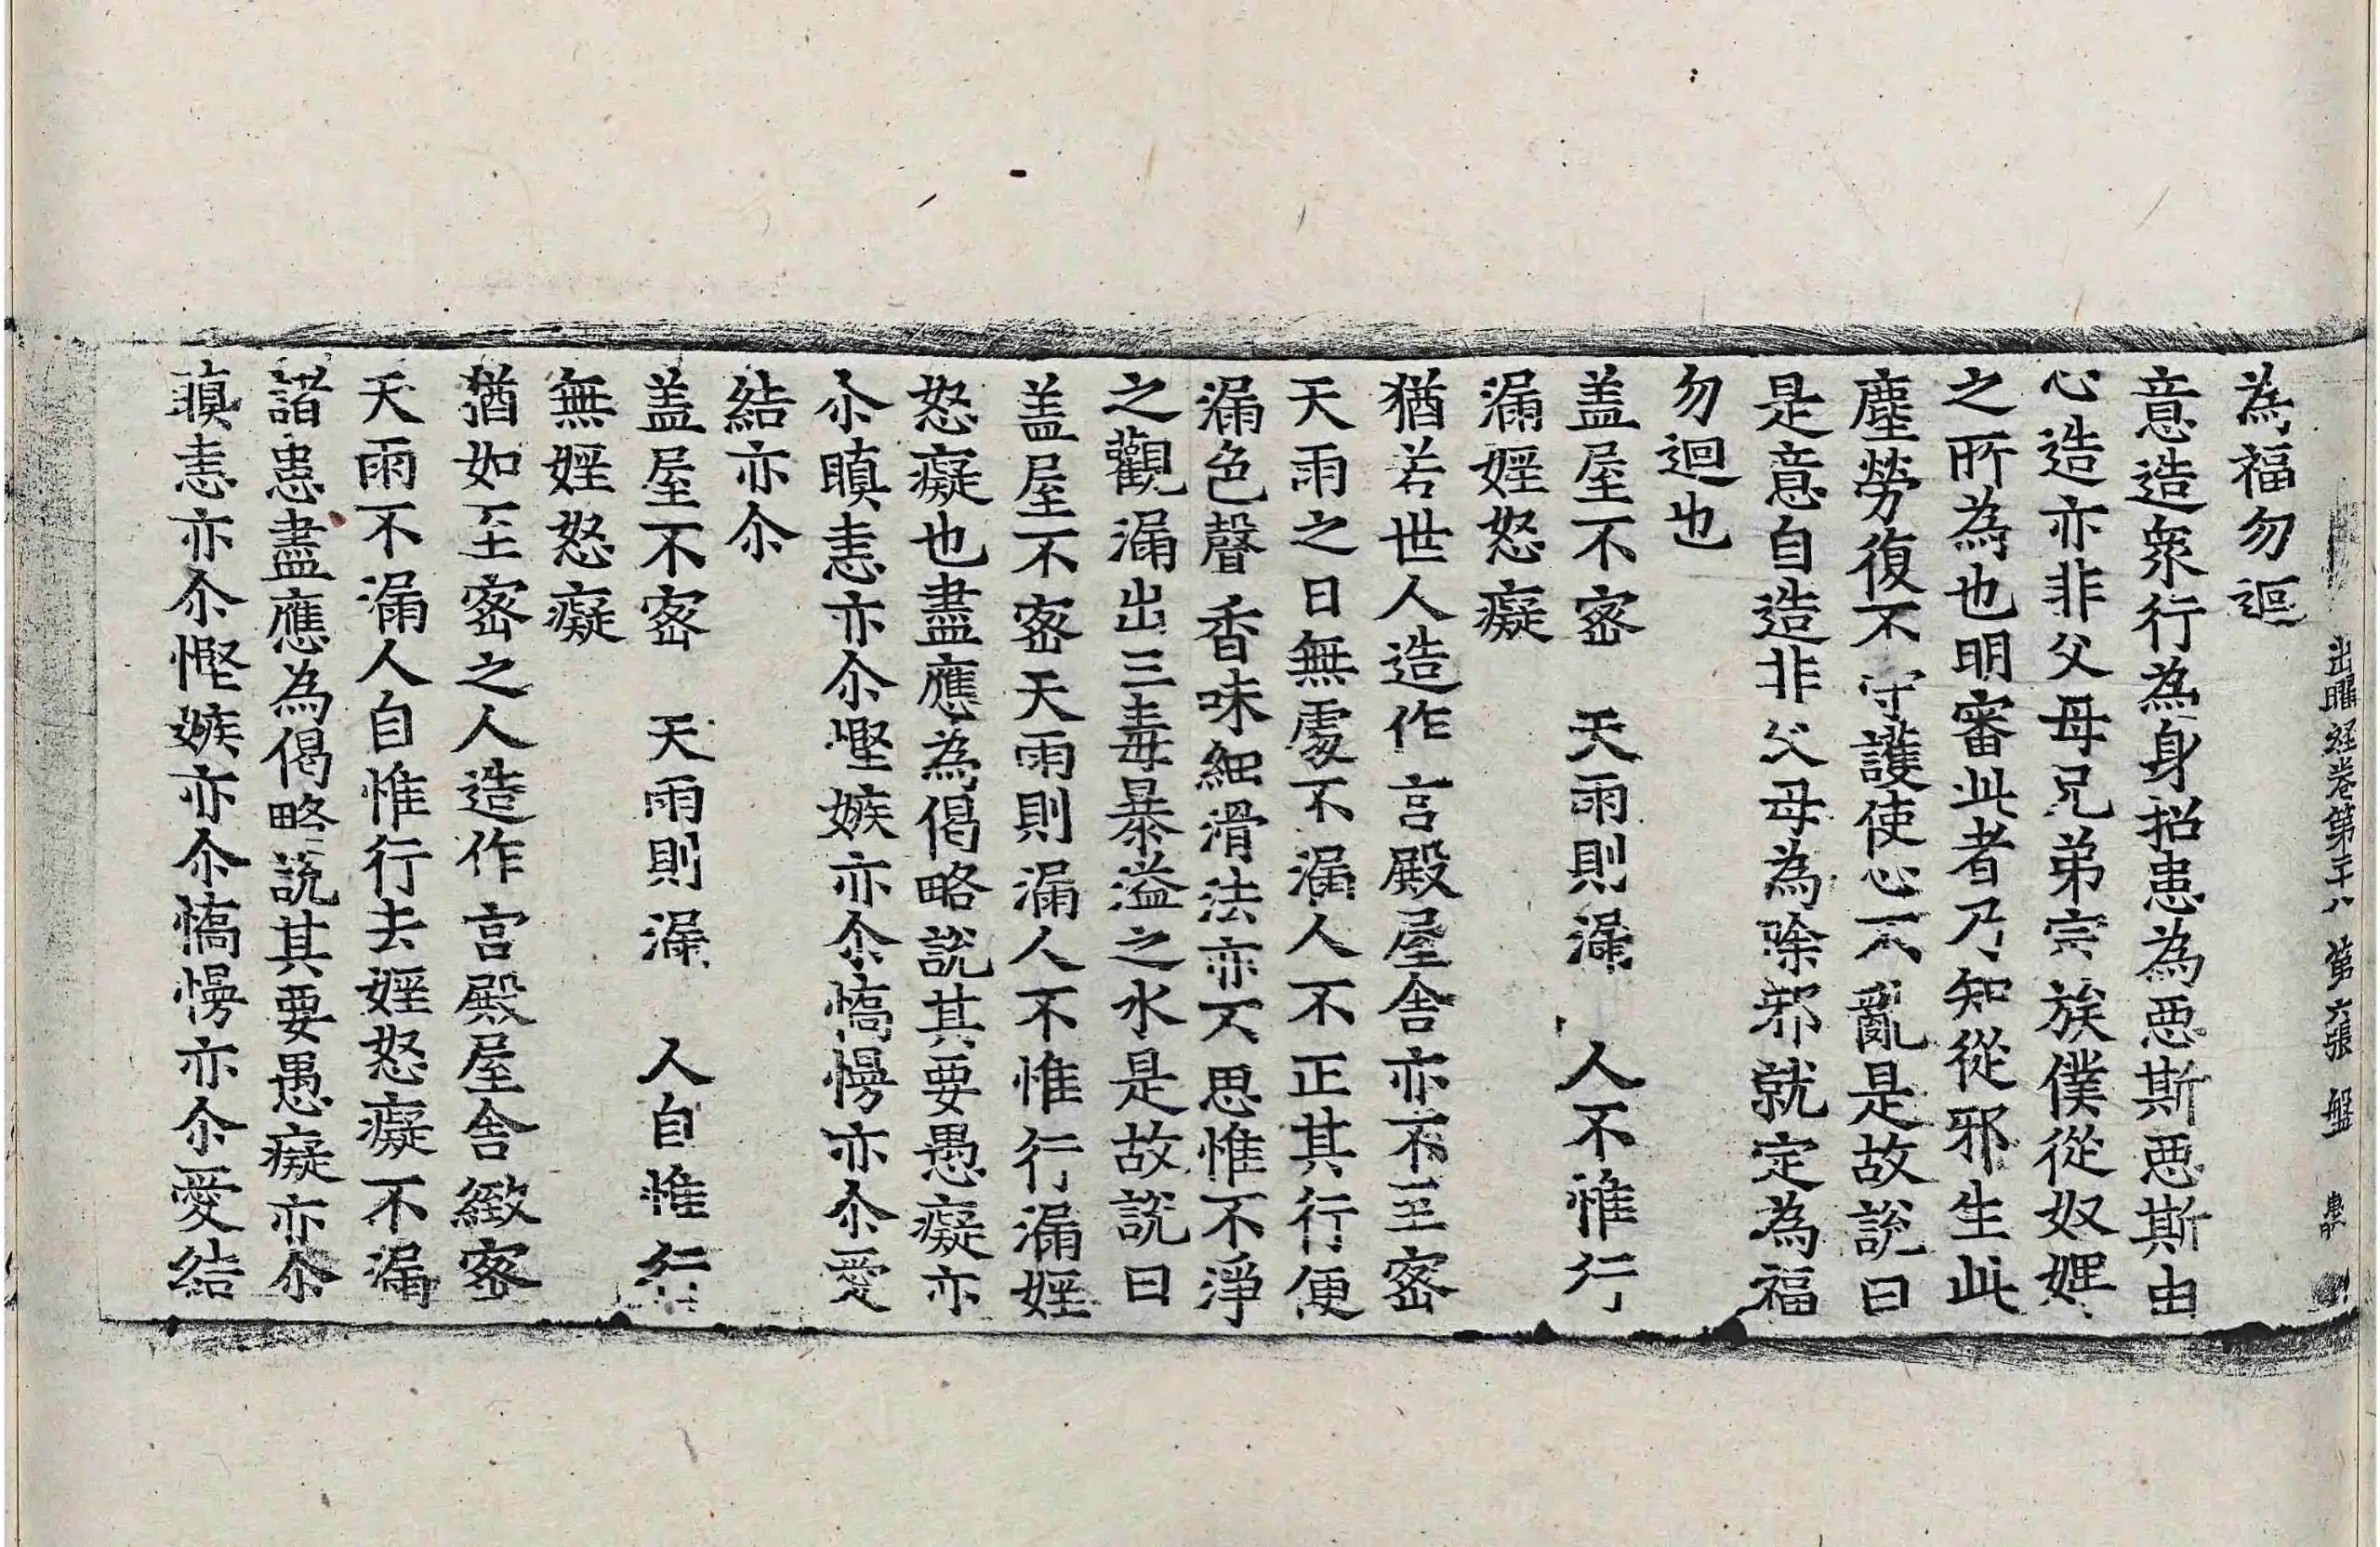 出曜経卷第二十八 第六張 盤
為福勿迴
意造衆行為身招患為惡斯惡斯由
心造亦非父母兄弟宗族僕從奴婢
之所為也明審此者乃知從邪生此
塵勞復不守護使心不亂是故說曰
是意自造非父母為除邪就定為福
勿迴也
盖屋不密 天雨則漏 人不惟行
漏婬怒癡
猶若世人造作宮殿屋舍亦不至密
天雨之日無處不漏人不正其行便
漏色聲香味細滑法亦不思惟不淨
之觀漏出三毒暴溢之水是故說曰
盖屋不密天雨則漏人不惟行漏婬
怒癡也盡應為偈略說其要愚癡亦
尒瞋恚亦尒慳嫉亦尒憍慢亦尒愛
結亦尒
盖屋不密 天雨則漏 人自惟行
無婬怒癡
猶如至密之人造作宮殿屋舍緻密
天雨不漏人自惟行去婬怒癡不漏
諸患盡應為偈略說其要愚癡亦尒
瞋恚亦尒慳嫉亦尒憍慢亦尒愛結